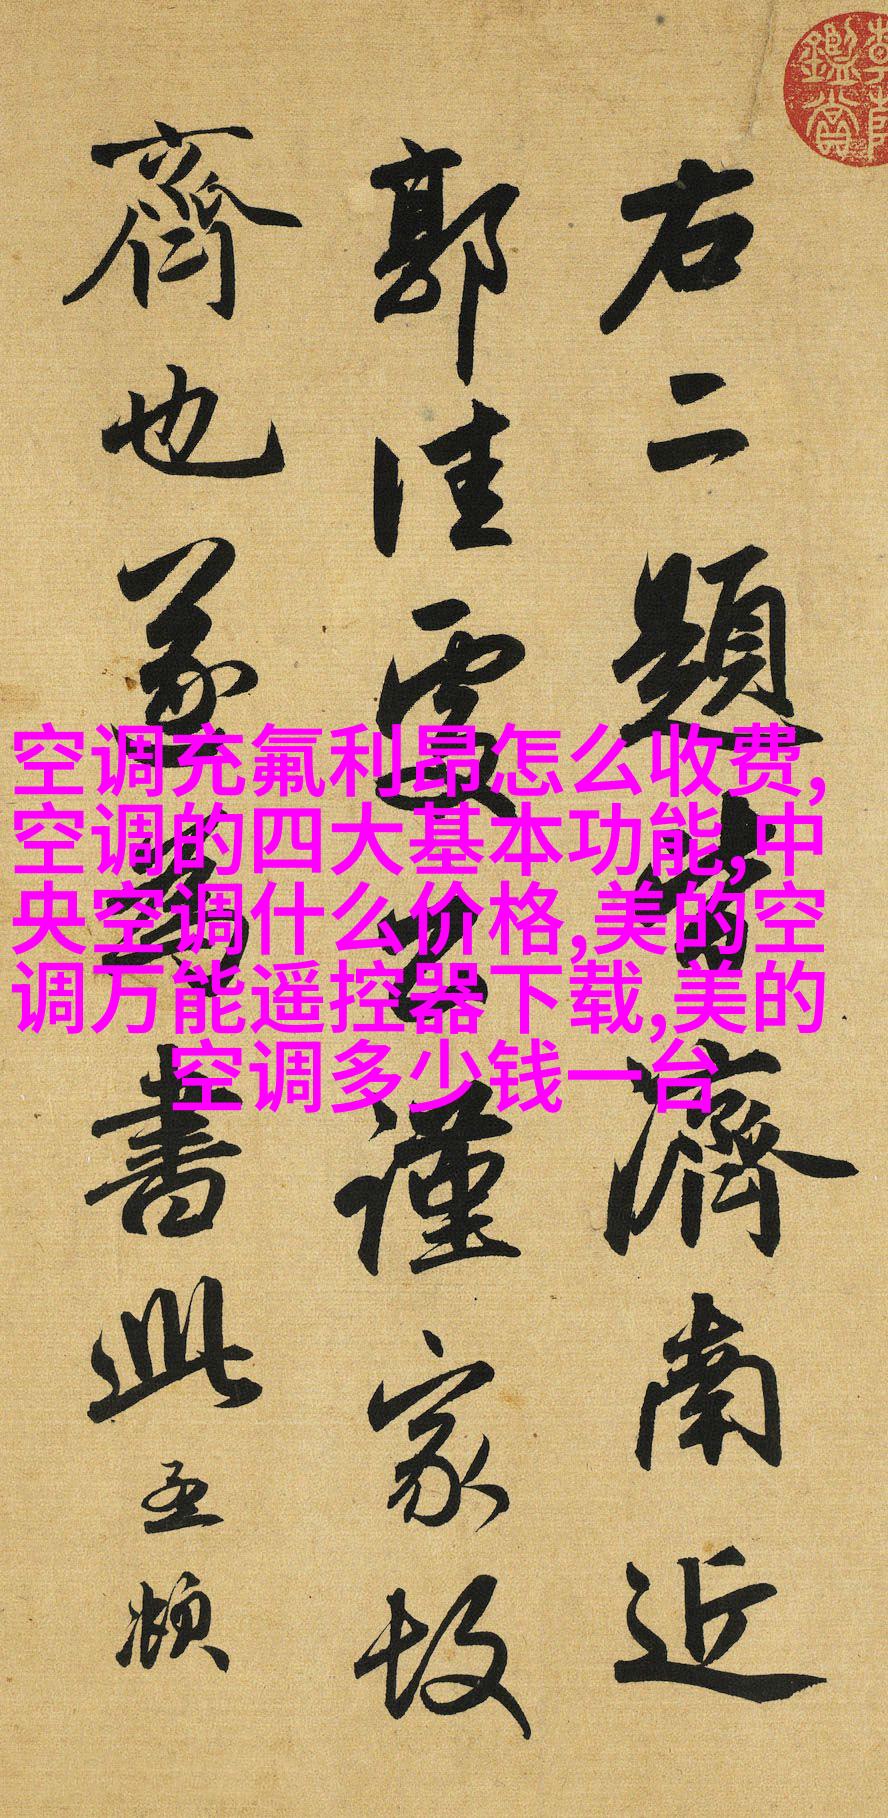 右二題皆濟南近
郭佳處公謹家故
齊也遂為書此孟頫
空调充氟利昂怎么收费,
空调的四大基本功能,中
央空调什么价格,美的空
调万能遥控器下载,美的
空调多少钱一台
鑑賞